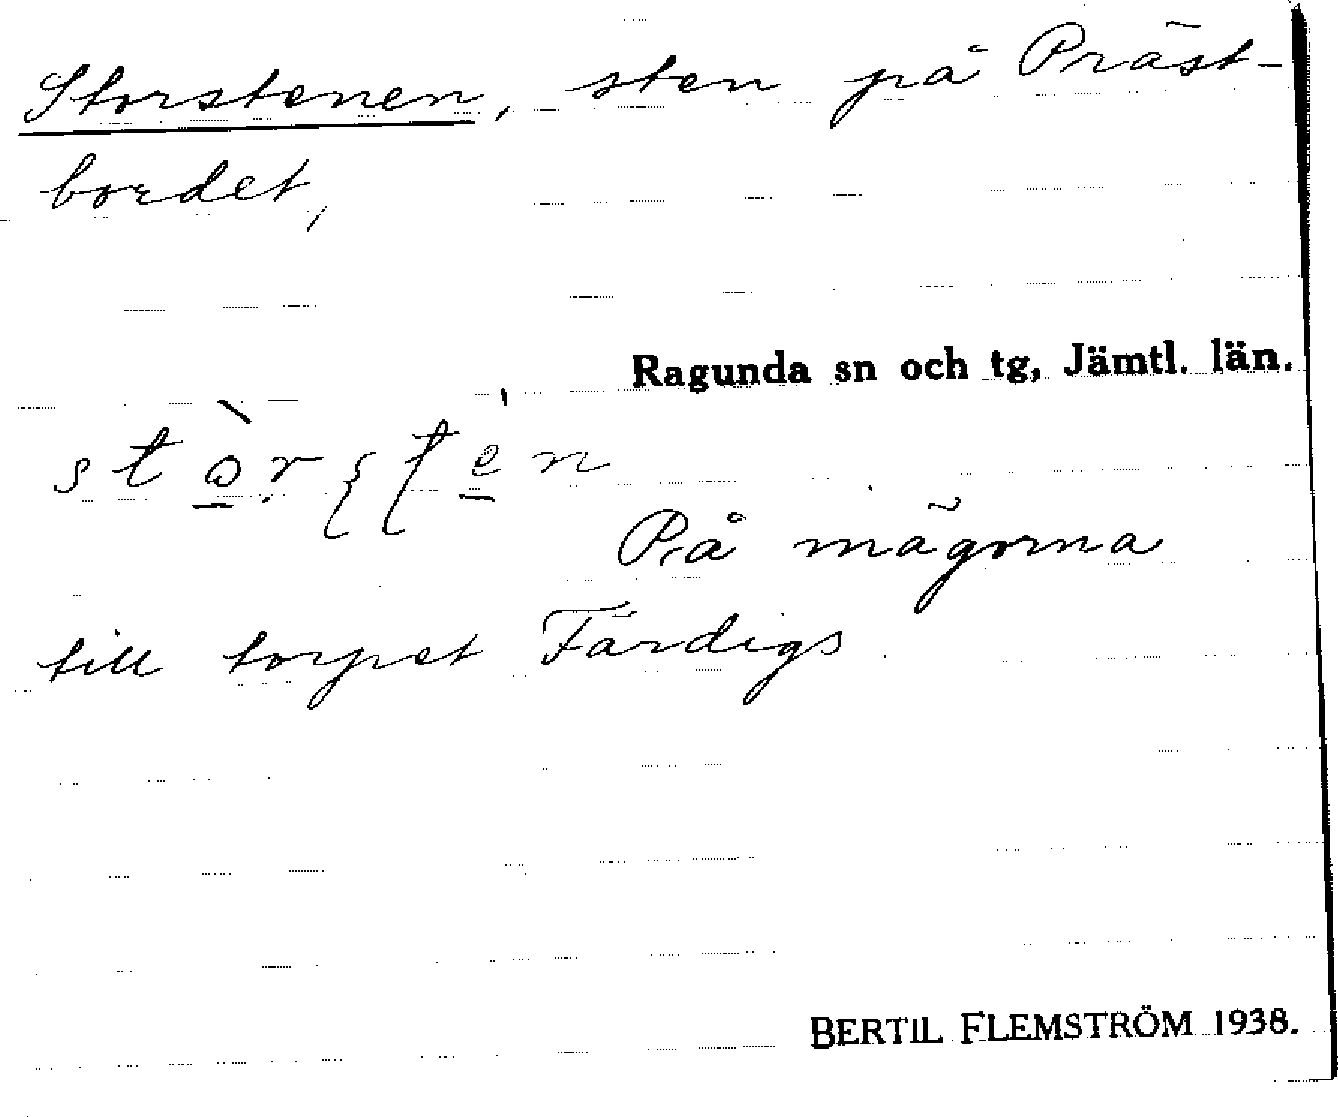 Storstenen, sten på Präst-
bordet,
Ragunda sn och tg, Jämtl. län.
På mägorna
till torpet Färdigs
BERTIL FLEMSTRÖM 1938.